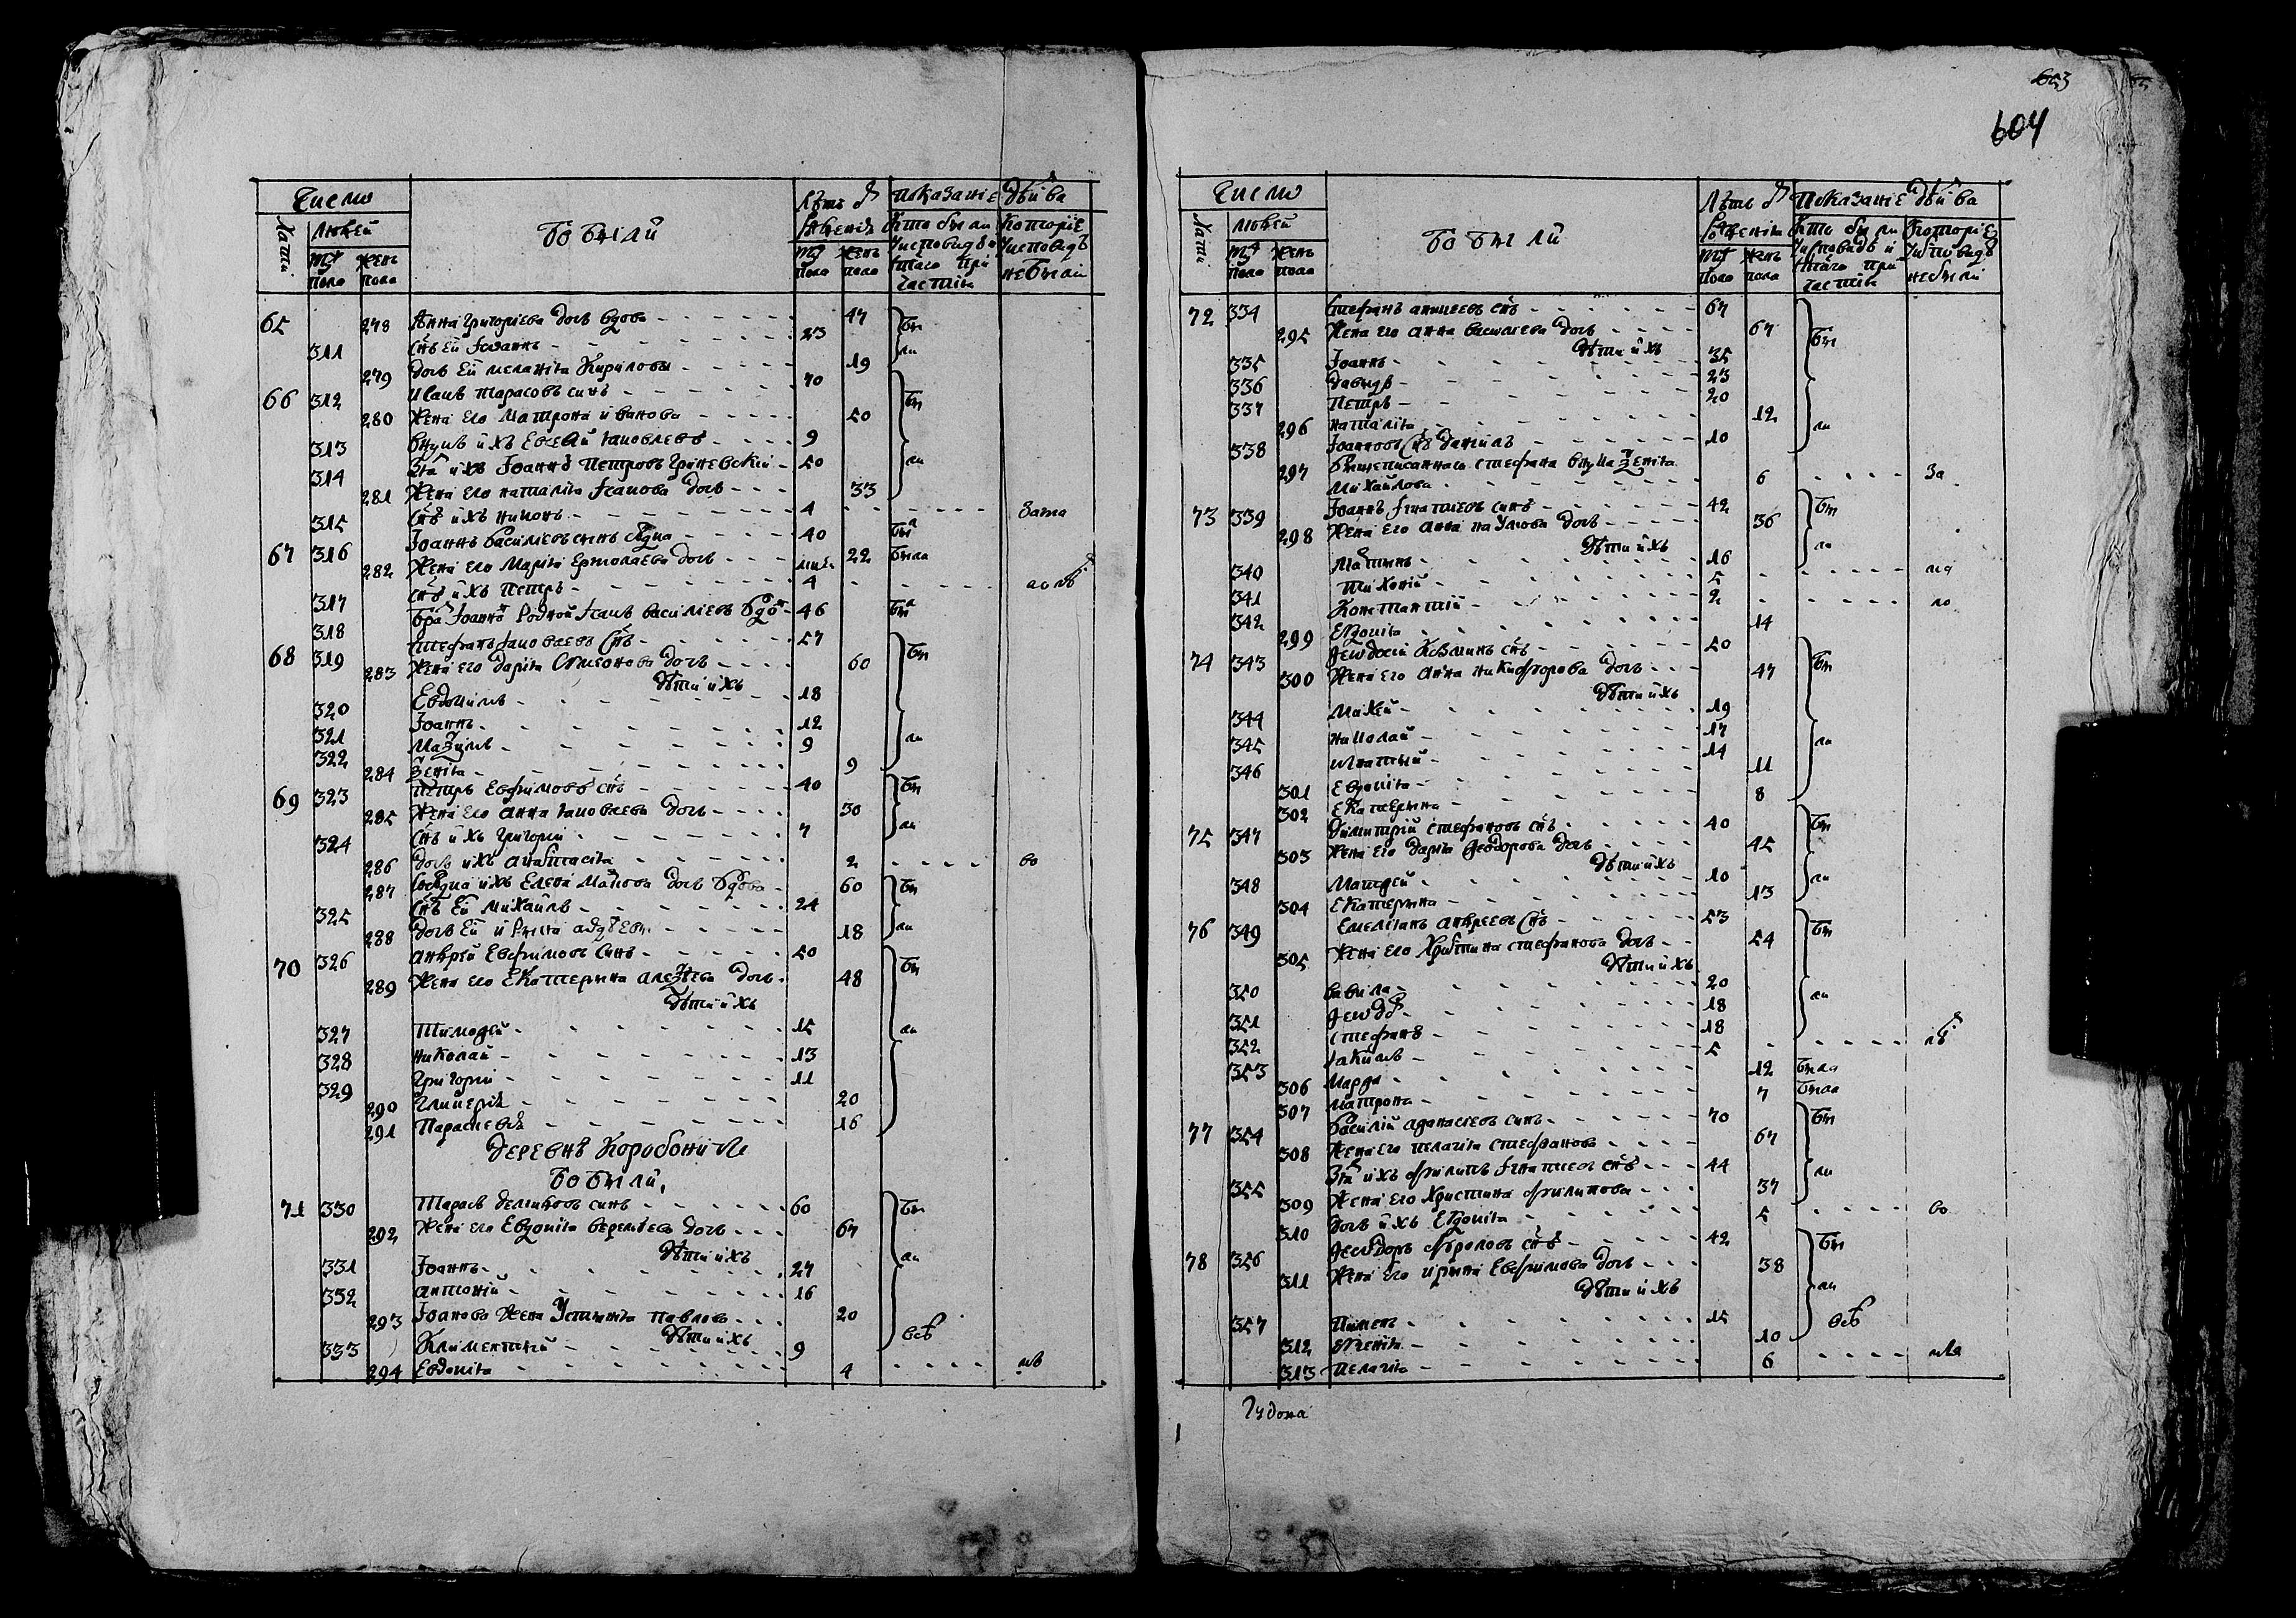 653
604
Число
Хати
Людей
Муж пола
Женъ пола
Бобыли
Лѣтъ ѿ рожденія
Муж пола
Женъ пола
Показаніе дѣйва
Кто были у исповѣди и стаго причастія
Которіе у исповѣдѣ не были
65 278 Анна Григоріева дочь вдова 47 бы
311 Снъ ей Іоаннъ 23
279 Дочь ей Меланія Кирилова 19 ли
66 312 Иванъ Тарасовъ синъ 70
280 Жена его Матрона иванова 50 бы
313 Внукъ ихъ Евсевій Яковлевъ 9
314 Зят ихъ Іоаннъ Петровъ Гриневскій 50 ли
281 Жена его наталія Ісакова дочь 33
315 Снъ ихъ никонъ 4
67 316 Іоаннъ Василіевъ синъ 40 был
282 Жена его Марія Ермолаева дочь 22 была
317 Снъ ихъ Петръ 4
318 Бра Іоаннов родной Ісакъ Василіевъ вдов 46 был
68 319 Стефанъ Яковлевъ Снъ 57
283 Жена его Дарія Симеонова дочь 60 бы
Дѣти ихъ
320 Евдокимъ 18
321 Іоаннъ 12
322 Мазимъ 9 ли
284 Зенія 9
69 323 Петръ Евфимовъ снъ 40 бы
285 Жена его анна Яковлева дочь 30
324 Снъ ихъ григорій 7 ли
286 Дочь ихъ анастасія 2
287 Сосѣдка ихъ Елена дочь вдова 60 бы
325 Снъ ей Михаилъ 24
288 Дочь ей ирина 18 ли
70 326 андрей Евфимовъ Синъ 50
289 Жена его Екатерина алезѣева дочь 48 бы
Дѣти ихъ
327 Тимофей 15 ли
328 николай 13
329 григорій 11
290 Гликерія 20
291 Параскевія 16
Деревнѣ Коробонки
Бобыли,
71 330 Тарасъ демковъ синъ 60 бы
292 Жена его Евдокія дочь 67
Дѣти ихъ
331 Іоаннъ 27 ли
332 антоній 16
293 Іоанова жена Устинія Павлова 20
Дѣти ихъ
333 Климентій 9 всѣ
294 Евдокія 4
Число
Хати
Людей
Муж пола
Женъ пола
Бобыли
Лѣтъ ѿ рожденія
Муж пола
Женъ пола
Показаніе дѣйва
Кто были у исповѣдѣ и стаго причастія
Которіе у исповѣдѣ не были
72 334 Стефанъ аникеевъ снъ 67
295 Жена его анна василева дочь 67 бы
Дѣти ихъ
335 Іоаннъ 35
336 давидъ 23
337 Петръ 20
296 наталія 12
338 Іоанновъ Снъ Даніилъ 10 ли
297 Вишеписаннаго стефана внука Зенія
Михайлова 6 За
73 339 Іоаннъ Ігнатіевъ синъ 42 бы
298 Жена его анна наумова дочь 36
Дѣти ихъ ли
340 Мартинъ 16
341 Тихоній 5
342 Константій 2
299 Евдокія 14
74 343 Феодосій Козминъ снъ 50
300 Жена его анна никифорова дочь 47 бы
Дѣти ихъ
344 Мокей 19
345 николай 17 ли
346 игнатій 14
301 Евдокія 11
302 Екатерина 8
75 347 Димитрій стефановъ снъ 40 бы
303 Жена его дарія феодорова дочь 45
Дѣти ихъ
348 Матфей 10 ли
304 Екатерина 13
76 349 Емеліанъ андреевъ Снъ 53
305 Жена его Христина стефанова дочь 54 бы
Дѣти ихъ
350 вавила 20
351 Феодо 18 ли
352 стефанъ 18
353 Іакимъ 5
306 Марфа 12 была
307 Матрона 7 была
77 354 Василій афанасіевъ синъ 70 бы
308 Жена его пелагія стефанова 67
355 Зят ихъ филипъ Ігнатіевъ снъ 44 ли
309 Жена его Христина филипова 37
310 Дочь ихъ Евдокія 5
78 356 Феодоръ фроловъ снъ 42 бы
311 Жена его ирина Евфимова дочь 38
Дѣти ихъ ли
357 Пименъ 15 всѣ
312 Евгенія 10
313 Пелагія 6